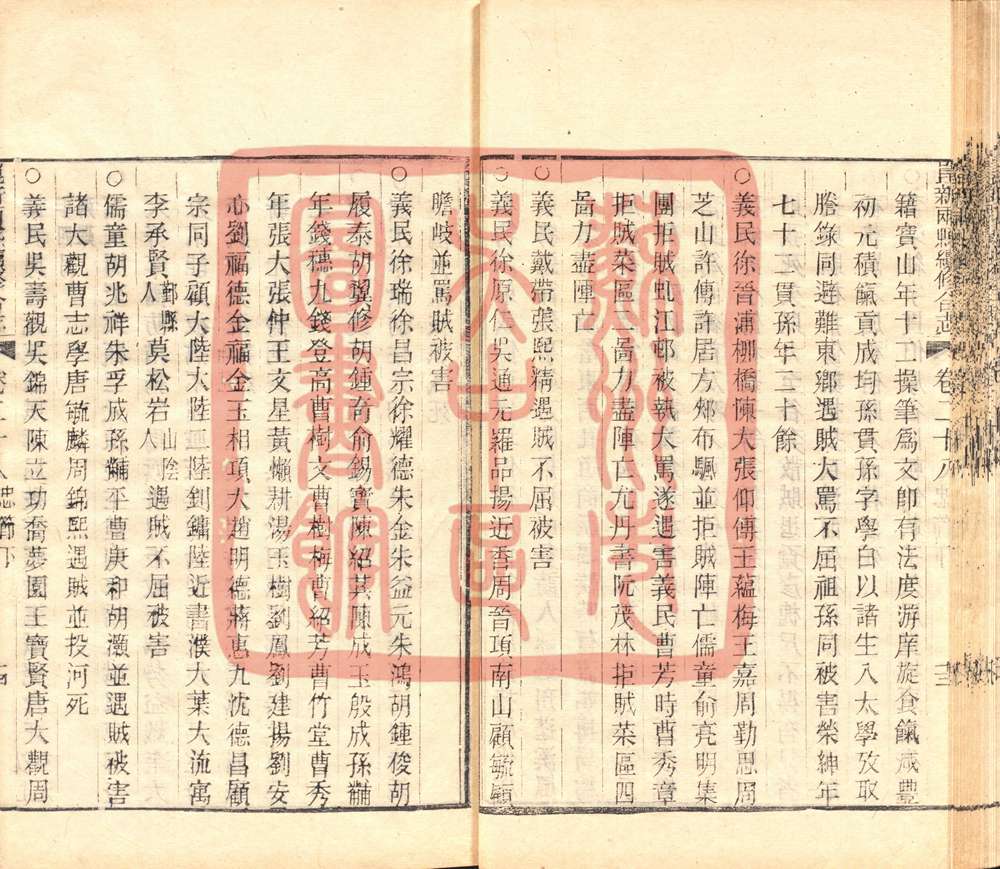 崑新兩縣續修合志 卷二十八
籍寶山年十工操筆爲文即有法度游庠旋食餼咸豐
初元積餼貢成均孫貫孫字學白以諸生入太學攷取
謄錄同避難東鄉遇賊大罵不屈祖孫同被害榮紳年
七十 貫孫年三十餘
○義民徐晉浦棚橋陳大張仰傳王蘊梅王嘉周勤思周
芝山許傳許居方郟布颿並拒賊陣亡儒童俞亮明集
團拒賊虬江邨被執大罵遂遇害義民曹芳時曹秀章
拒賊菜區一啚力盡陣亡尤丹書阮茂林拒賊菜區四
啚力盡陣亡
○義民戴帶張熙精遇賊不屈被害
○義民徐原仁吳通元羅品揚近香周晉項南山顧毓顧
瞻岐並罵賊被害
○義民徐瑞徐昌宗徐耀德朱金朱益元朱鴻胡鍾俊胡
履泰胡翼修胡鍾奇俞錫寶陳紹其陳成玉殷成孫黼
年錢穗九錢登高曹樹文曹樹梅曹紹芳曹竹堂曹秀
年張大張仲王文星黃懶耕湯玉樹劉鳳劉建揚劉安
心劉福德金福金玉相項大趙明德蔣惠九沈德昌顧
宗同子顧大陸大陸 陸釗鏞陸近書濮大葉大流寓
李承賢鄞縣人莫松岩山陰人遇賊不屈被害
○儒童胡兆祥朱孚成孫黼平曹庚和胡灝並遇賊被害
諸大觀曹志學唐毓麟周錦熙遇賊並投河死
○義民吳壽觀吳錦天陳立功喬夢園王寶賢唐大觀周
蘇州大學圖書館